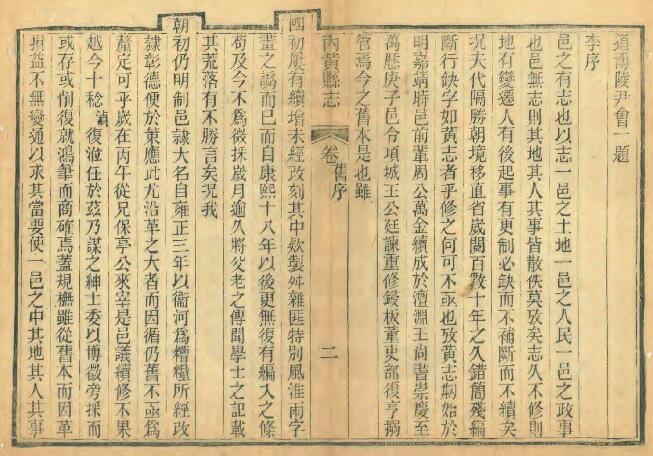 道博陵尹會一題
李序
邑之有志也以志一邑之土地一邑之人民一邑之政事
也邑無志則其地其人其事皆散佚莫攷矣志久不修則
地有變遷人有後起事有更制必缺而不補斷而不續矣
况大代隔勝朝境移直省歲閱百數十年之久錯簡殘編
斷行缺字如黄志者乎修之何可不亟也攷黄志剏始於
明嘉靖時邑前輩周公萬金續成於澶淵王尚書崇慶至
萬歷庚子邑令項城王公廷諫重修鋟板董吏部復亨捐
管焉今之舊本是也雖
内黄縣志
卷
舊序
二
國初屢有續增未經改刻其中欵製舛雜匪特別風淮雨字
畫之譌而已而自康熙十八年以後更無復有編入之條
苟及今不爲微採歲月逾久將父老之傳聞學士之記載
其荒落有不勝言矣况我
朝初仍明制邑隷大名自雍正三年以衞河爲糟糧所經改
隷彰德便於策應此尤沿革之大者而因循仍舊不亟爲
釐定可乎歲在丙午從兄保亭公來宰是邑議續修不果
越今十稔 復涖任於茲乃謀之紳士委以博徵旁採而
或存或倒復就鴻筆而商確焉蓋規橅雖從舊本而因革
損益不無變通以求其當要使一邑之中其地其人其事